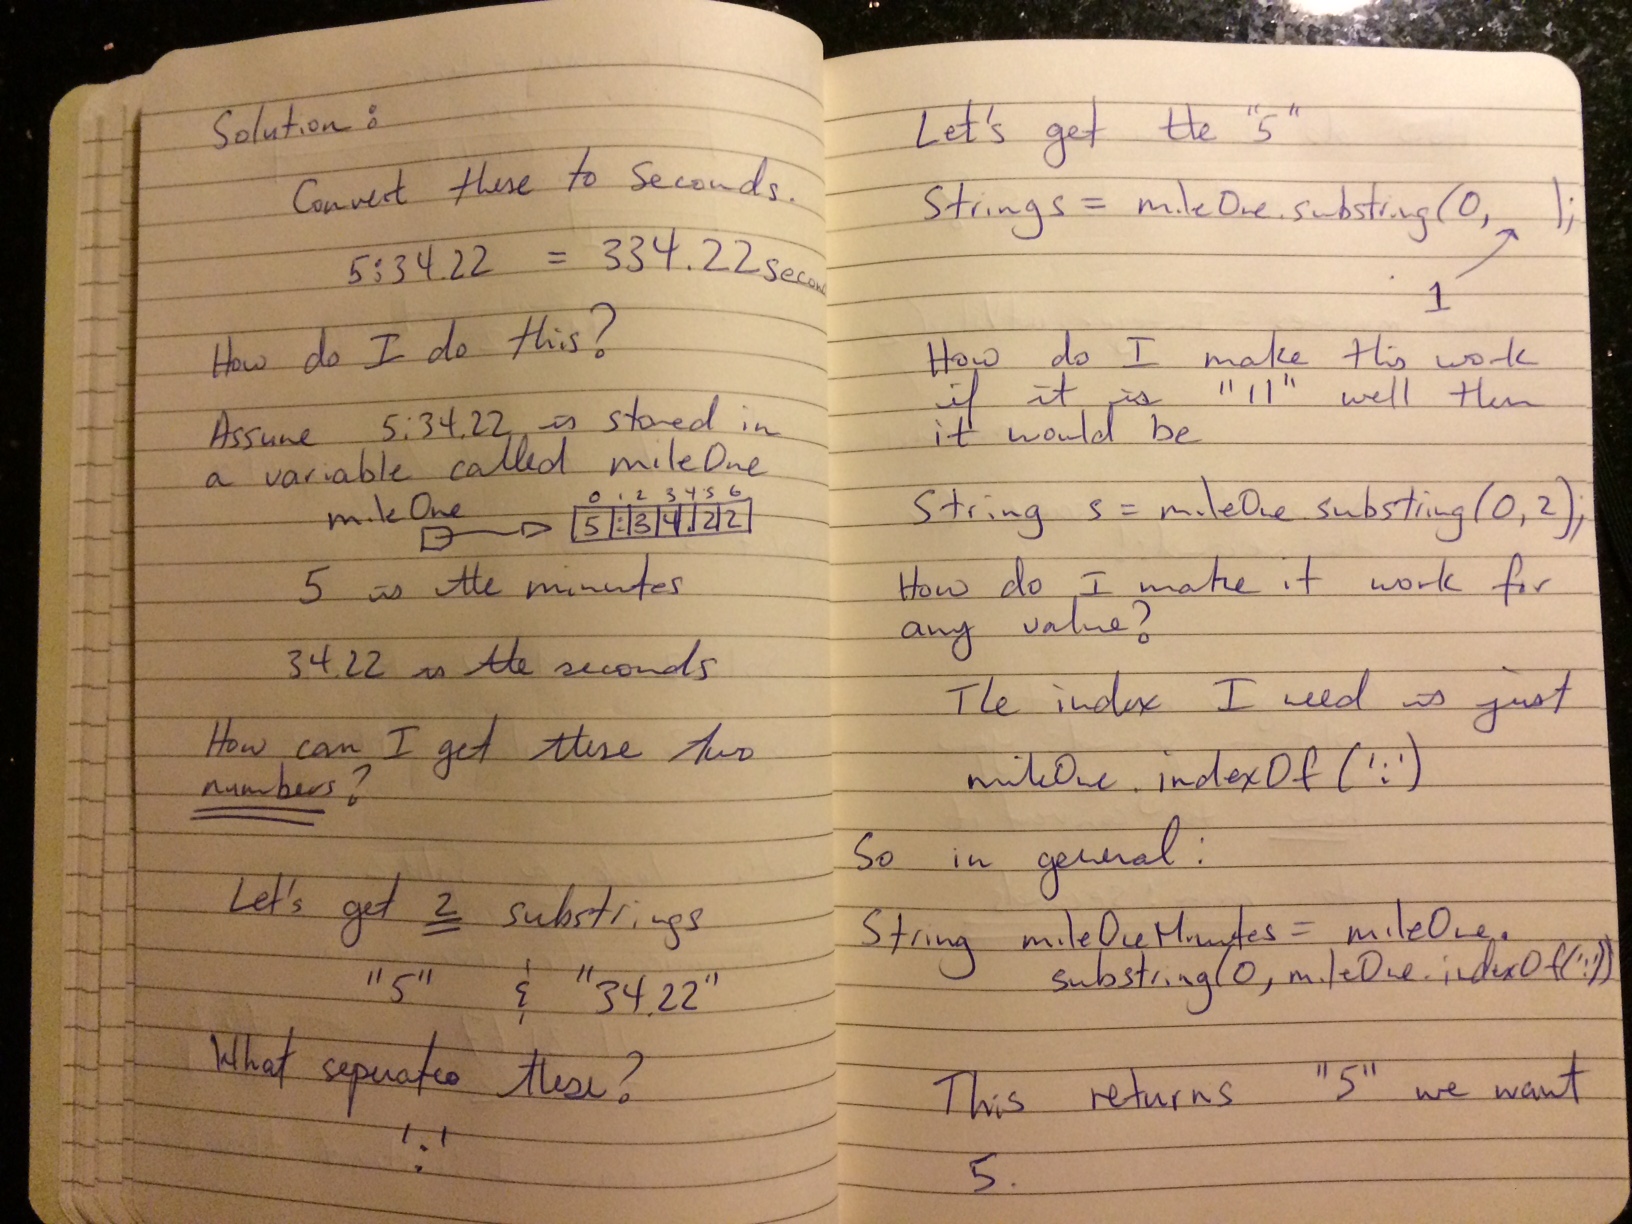 Solution:
Convert these to seconds.
5:34.22 = 334.22 secon
How do I do this?
Assume 5:34.22 is stored in
a variable called mileOne
mileOne
0 1 2 3 4 5 6
5 : 3 4 . 2 2
5 is the minutes
34.22 is the seconds
How can I get these two
numbers?
Let's get 2 substrings
"5" & "34.22"
What seperates these?
':'
Let's get the "5"
String s = mileOne.substring(0, );
1
How do I make this work
if it is "11" well then
it would be
String s = mileOne.substring(0,2);
How do I make it work for
any value?
The index I need is just
mileOne.indexOf(':')
So in general:
String mileOneMinutes = mileOne.
substring(0, mileOne.indexOf(':'))
This returns "5" we want
5.